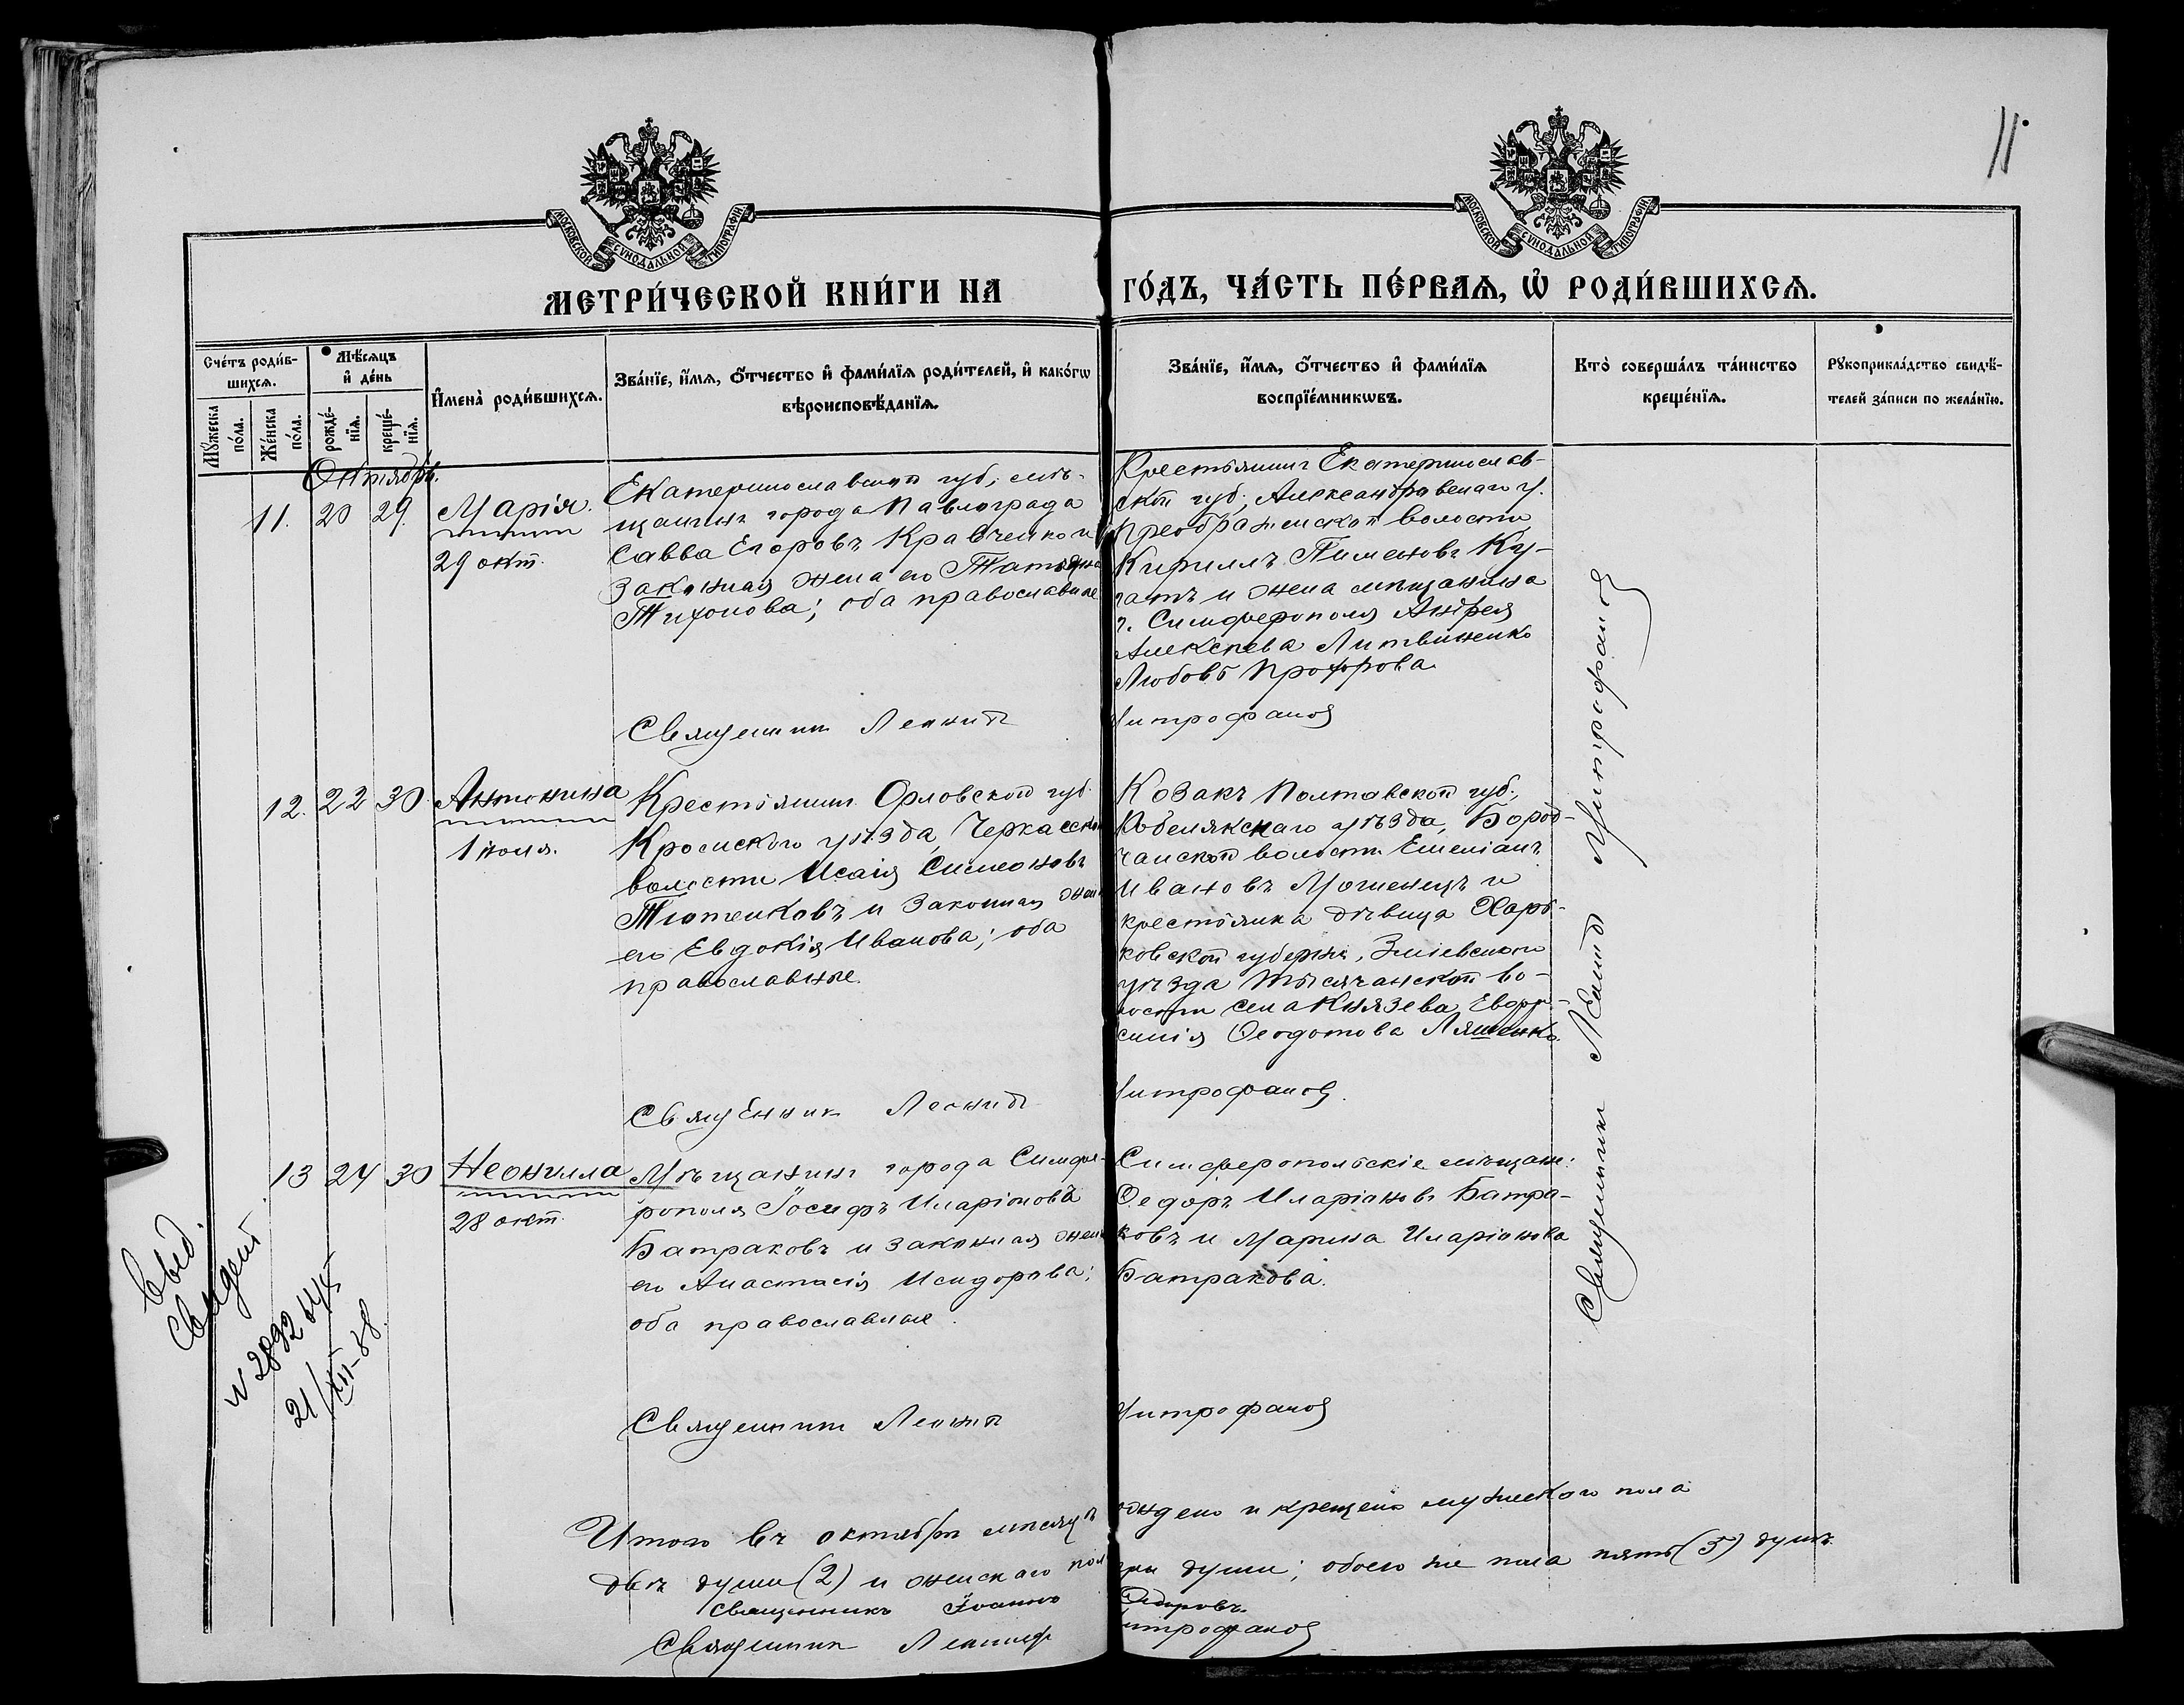 11.
МОСКОВСКОЙ СѴНОДАЛЬНОЙ ТИПОГРАФІИ.
МОСКОВСКОЙ СѴНОДАЛЬНОЙ ТИПОГРАФІИ.
МЕТРИ́ЧЕСКОЙ КНИ́ГИ НА ГО́ДЪ, ЧА́СТЬ ПЕ́РВАѦ, Ѡ РОДИ́ВШИХСѦ.
Сче́тъ роди́в-
шихсѧ.
Мꙋ́жеска
по́ла.
Же́нска
по́ла.
Мѣ́сѧцъ
и҆ де́нь
рожде́-
нїѧ.
креще́-
нїѧ.
И҆мена̀ роди́вшихсѧ.
Зва́нїе, и҆́мѧ, ѻ҆́тчество и҆ фами́лїѧ роди́телей, и҆ како́гѡ
вѣроисповѣ́данїѧ.
Зва́нїе, и҆́мѧ, ѻ҆́тчество и҆ фами́лїѧ
воспрїе́мникѡвъ.
Кто̀ соверша́лъ та́инство
креще́нїѧ.
Рꙋкоприкла́дство свидѣ́-
телей за́писи по жела́нїю.
Октябрь.
11. 20 29.
Марія.
29 окт.
Екатеринославской губ, мѣ-
щанинъ города Павлограда
Савва Егоровъ Кравченко и
законная жена его Татьяна
Тихонова; оба православные
Крестьянинъ Екатеринослав-
ской губ., Александровскаго у.
Преображенской волости
Кириллъ Пименовъ Ку-
гатъ и жена мѣщанина
г. Симферополя Андрея
Алексѣева Литвиненко
Любовь Прохорова.
Священникъ Леонидъ Митрофановъ
12. 22 30.
Антонина
1 ноля.
Крестьянинъ Орловской губ.
Кромскаго уѣзда, Черкасской
волости Исаія Симеоновъ
Тютенковъ и законная жена
его Евдокія Иванова; оба
православные.
Козакъ Полтавской губ.,
Кобелякскаго уѣзда, Бород-
чанской волости Емеліанъ
Ивановъ Мошенецъ и
крестьянка дѣвица Харь-
ковской губерніи, Зміевскаго
уѣзда волости села Князева Евфро-
синія Ѳеодотова Ляшенко.
Священникъ Леонидъ Митрофановъ.
13 24 30
Неонилла
28 окт.
Мѣщанинъ города Симфе-
рополя Іосифъ Иларіоновъ
Батраковъ и законная жена
его Анастасія Исидорова;
оба православные.
Симферопольскіе мѣщане:
Ѳедоръ Иларіоновъ Батра-
ковъ и Марина Иларіонова
Батракова.
Священникъ Леонидъ Митрофановъ
Священникъ Леонидъ Митрофановъ
№ 2892
21/XII-38
Итого въ октябрѣ мѣсяцѣ рождено и крещено мужескаго пола
двѣ души (2) и женскаго пола три души; обоего же пола пять (5) душъ.
Священникъ Іоаннъ Ѳедоровъ.
Священникъ Леонидъ Митрофановъ